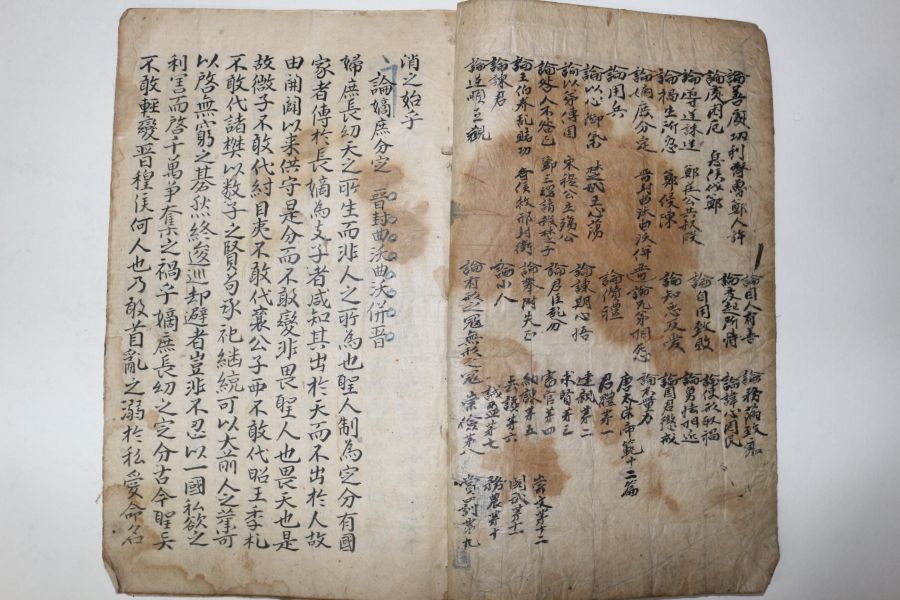 論善惡功利 齊魯鄭人許
論處闲厄 息侯伐鄭
論辱逆誅逆 鄭莊公共叔段
論禍生所忽 鄭侵陳
論嫡庶分定 晋封曲沃曲沃併晋
論用兵
論以心御氣 楚武王心蕩
論以第傳國 宋穆公立殤公
論咎人不咎己 鄭三甥請殺楚子
論王伯參亂賂功 會侯救邢封衛
論諫君
論逆順立觀
論自人有善
論彦起所恃
論自用致敗
論知忠反爱
論兄弟相忌
論諫期心悟
論君臣亂分
論擧附失正
論小人
論有形之冠無形之冠
論務論致煮
論諱心周民
論使形歌禍
論勇怯相近
論因君徵戒
論君量力
唐太宗帝範十二篇
君體第一
建親第二
求賢第三
審官第四
納諫第五
去讒第六
誡盈第七
崇儉第八
賞罰第九
務農第十
閱武第十一
崇文第十二
消之始乎
論嫡庶分定 晋封曲沃曲沃併晋
婦庶長幼天之所生而非人之所為也聖人制為定分有國
家者傳於長嫡為支子者咸知其出於天而不出於人故
由開闢以来供守是分而不敢變非畏聖人也畏天也是
故微子不敢代紂目夷不敢代襄公子西不敢代昭王季札
不敢代諸樊以數子之賢苟承祀継統可以大前人之業可
以啓無窮之基然終逡巡却避者豈非不忍以一國私欲之
利害而啓千萬爭奪之禍乎嫡庶長幼之定分古今聖矣
不敢輕變晋穆侯何人也乃敢首亂之溺於私愛命名